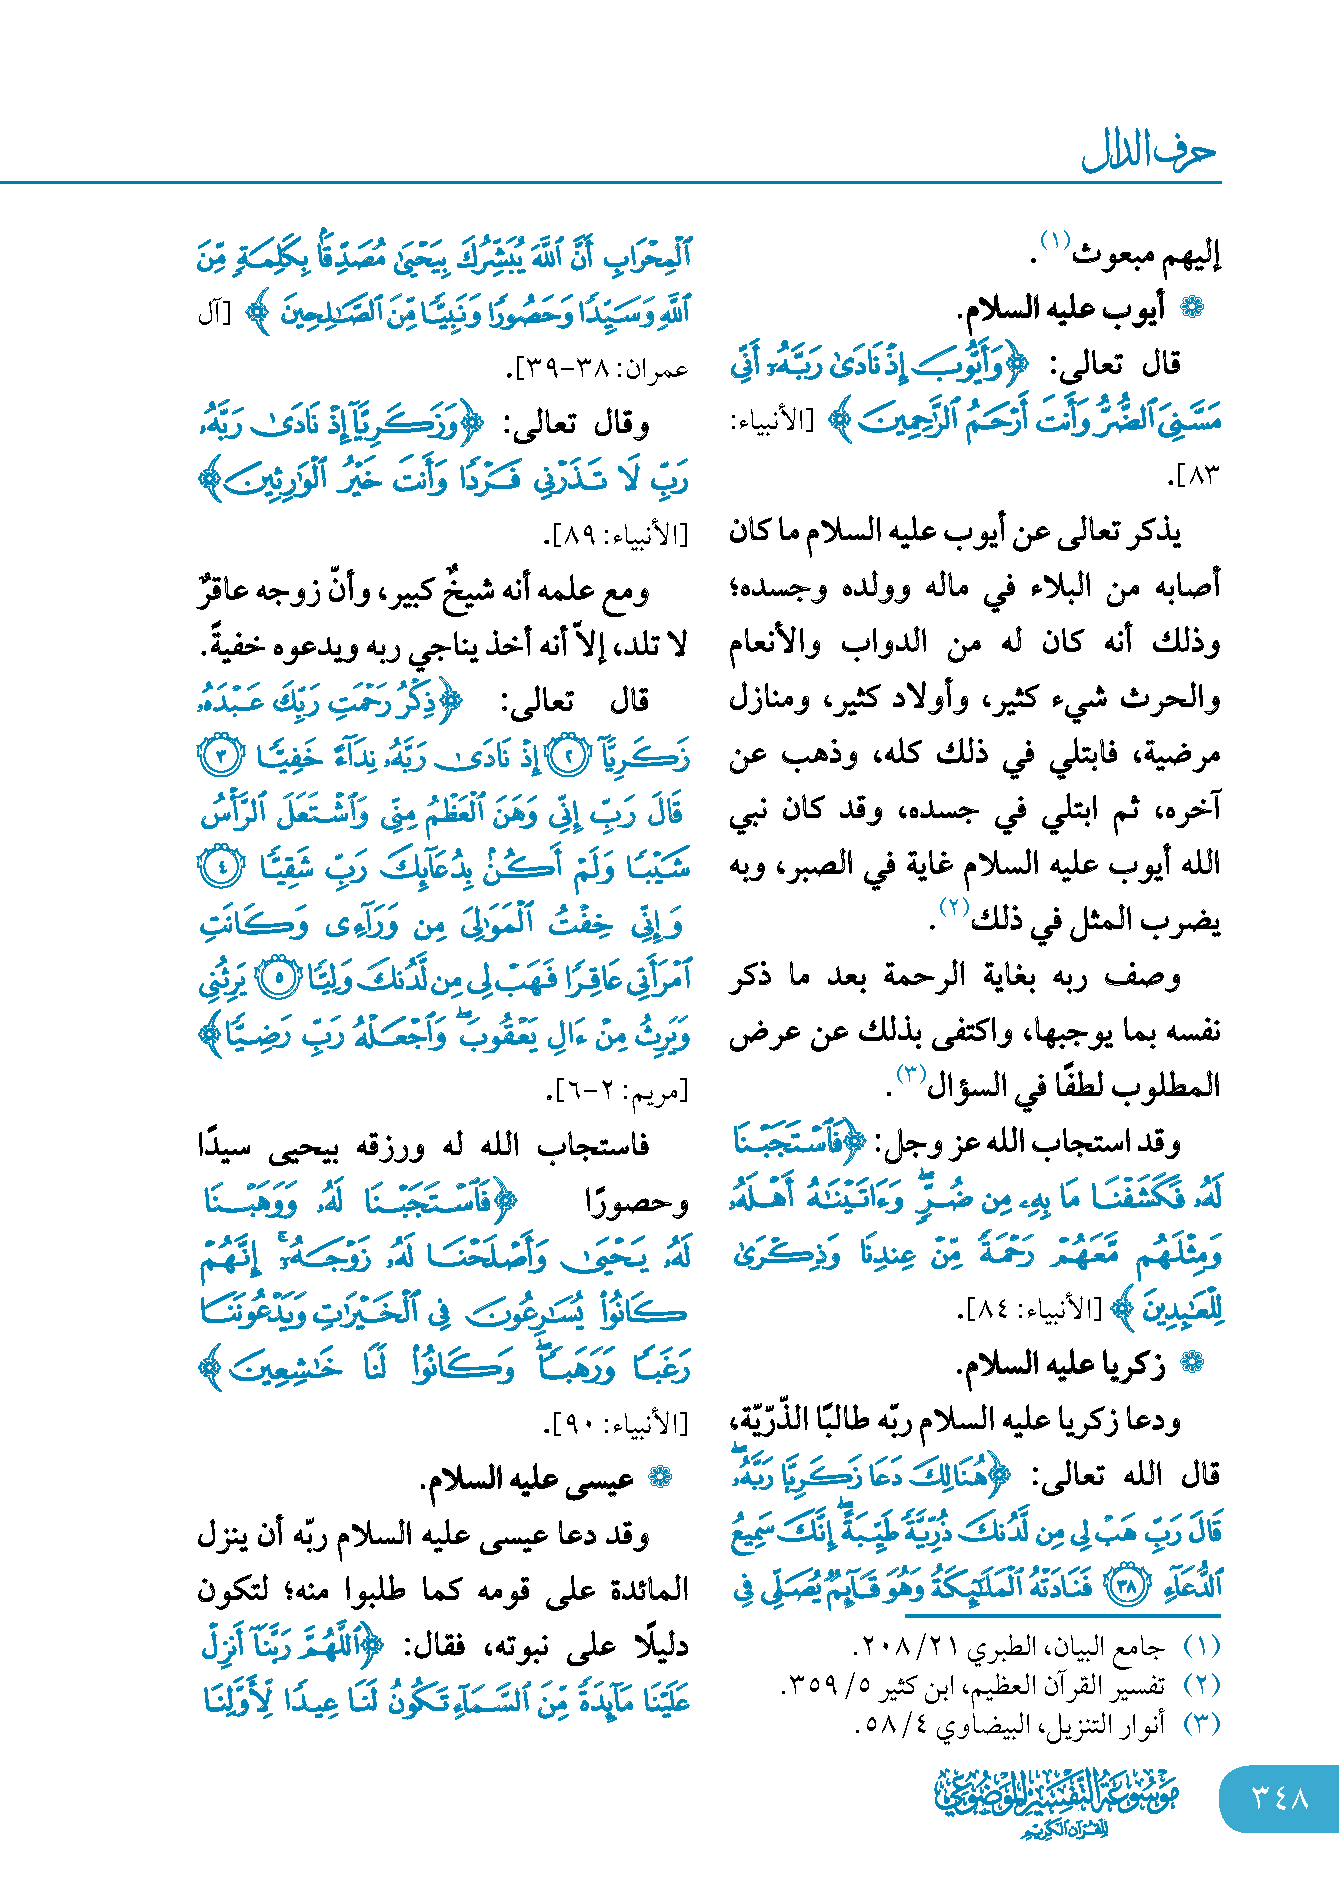 حرف الدال
إليهم مبعوث(١).
❁ أيوب عليه السلام.
قال تعالى: ﴿وَأَيُّوبَ إِذْ نَادَىٰ رَبَّهُۥٓ أَنِّي
مَسَّنِيَ ٱلضُّرُّ وَأَنتَ أَرْحَمُ ٱلرَّٰحِمِينَ﴾ [الأنبياء:
٨٣].
يذكر تعالى عن أيوب عليه السلام ما كان
أصابه من البلاء في ماله وولده وجسده؛
وذلك أنه كان له من الدواب والأنعام
والحرث شيء كثير، وأولاد كثير، ومنازل
مرضية، فابتلي في ذلك كله، وذهب عن
آخره، ثم ابتلي في جسده، وقد كان نبي
الله أيوب عليه السلام غاية في الصبر، وبه
يضرب المثل في ذلك(٢).
وصف ربه بغاية الرحمة بعد ما ذكر
نفسه بما يوجبها، واكتفى بذلك عن عرض
المطلوب لطفًا في السؤال(٣).
وقد استجاب الله عز وجل: ﴿فَٱسْتَجَبْنَا
لَهُۥ فَكَشَفْنَا مَا بِهِۦ مِن ضُرٍّۖ وَءَاتَيْنَٰهُ أَهْلَهُۥ
وَمِثْلَهُم مَّعَهُمْ رَحْمَةً مِّنْ عِندِنَا وَذِكْرَىٰ
لِلْعَٰبِدِينَ﴾ [الأنبياء: ٨٤].
❁ زكريا عليه السلام.
ودعا زكريا عليه السلام ربّه طالبًا الذّرّيّة،
قال الله تعالى: ﴿هُنَالِكَ دَعَا زَكَرِيَّا رَبَّهُۥۖ
قَالَ رَبِّ هَبْ لِي مِن لَّدُنكَ ذُرِّيَّةً طَيِّبَةًۖ إِنَّكَ سَمِيعُ
ٱلدُّعَآءِ ٣٨ فَنَادَتْهُ ٱلْمَلَٰٓئِكَةُ وَهُوَ قَآئِمٌ يُصَلِّي فِي
(١) جامع البيان، الطبري ٢١/ ٢٠٨.
(٢) تفسير القرآن العظيم، ابن كثير ٥/ ٣٥٩.
(٣) أنوار التنزيل، البيضاوي ٤/ ٥٨.
ٱلْمِحْرَابِ أَنَّ ٱللَّهَ يُبَشِّرُكَ بِيَحْيَىٰ مُصَدِّقًۢا بِكَلِمَةٍ مِّنَ
ٱللَّهِ وَسَيِّدًا وَحَصُورًا وَنَبِيًّا مِّنَ ٱلصَّٰلِحِينَ﴾ [آل
عمران: ٣٨-٣٩].
وقال تعالى: ﴿وَزَكَرِيَّآ إِذْ نَادَىٰ رَبَّهُۥ
رَبِّ لَا تَذَرْنِي فَرْدًا وَأَنتَ خَيْرُ ٱلْوَٰرِثِينَ﴾
[الأنبياء: ٨٩].
ومع علمه أنه شيخٌ كبير، وأنّ زوجه عاقرٌ
لا تلد، إلاّ أنه أخذ يناجي ربه ويدعوه خفيةً.
قال تعالى: ﴿ذِكْرُ رَحْمَتِ رَبِّكَ عَبْدَهُۥ
زَكَرِيَّآ ٢ إِذْ نَادَىٰ رَبَّهُۥ نِدَآءً خَفِيًّا ٣
قَالَ رَبِّ إِنِّي وَهَنَ ٱلْعَظْمُ مِنِّي وَٱشْتَعَلَ ٱلرَّأْسُ
شَيْبًا وَلَمْ أَكُنۢ بِدُعَآئِكَ رَبِّ شَقِيًّا ٤
وَإِنِّي خِفْتُ ٱلْمَوَٰلِيَ مِن وَرَآءِي وَكَانَتِ
ٱمْرَأَتِي عَاقِرًا فَهَبْ لِي مِن لَّدُنكَ وَلِيًّا ٥ يَرِثُنِي
وَيَرِثُ مِنْ ءَالِ يَعْقُوبَۖ وَٱجْعَلْهُ رَبِّ رَضِيًّا﴾
[مريم: ٢-٦].
فاستجاب الله له ورزقه بيحيى سيدًا
وحصورًا ﴿فَٱسْتَجَبْنَا لَهُۥ وَوَهَبْنَا
لَهُۥ يَحْيَىٰ وَأَصْلَحْنَا لَهُۥ زَوْجَهُۥٓۚ إِنَّهُمْ
كَانُوا۟ يُسَٰرِعُونَ فِي ٱلْخَيْرَٰتِ وَيَدْعُونَنَا
رَغَبًا وَرَهَبًاۖ وَكَانُوا۟ لَنَا خَٰشِعِينَ﴾
[الأنبياء: ٩٠].
❁ عيسى عليه السلام.
وقد دعا عيسى عليه السلام ربّه أن ينزل
المائدة على قومه كما طلبوا منه؛ لتكون
دليلًا على نبوته، فقال: ﴿ٱللَّهُمَّ رَبَّنَآ أَنزِلْ
عَلَيْنَا مَآئِدَةً مِّنَ ٱلسَّمَآءِ تَكُونُ لَنَا عِيدًا لِّأَوَّلِنَا
موسوعة التفسير الموضوعي
للقرآن الكريم
٣٤٨